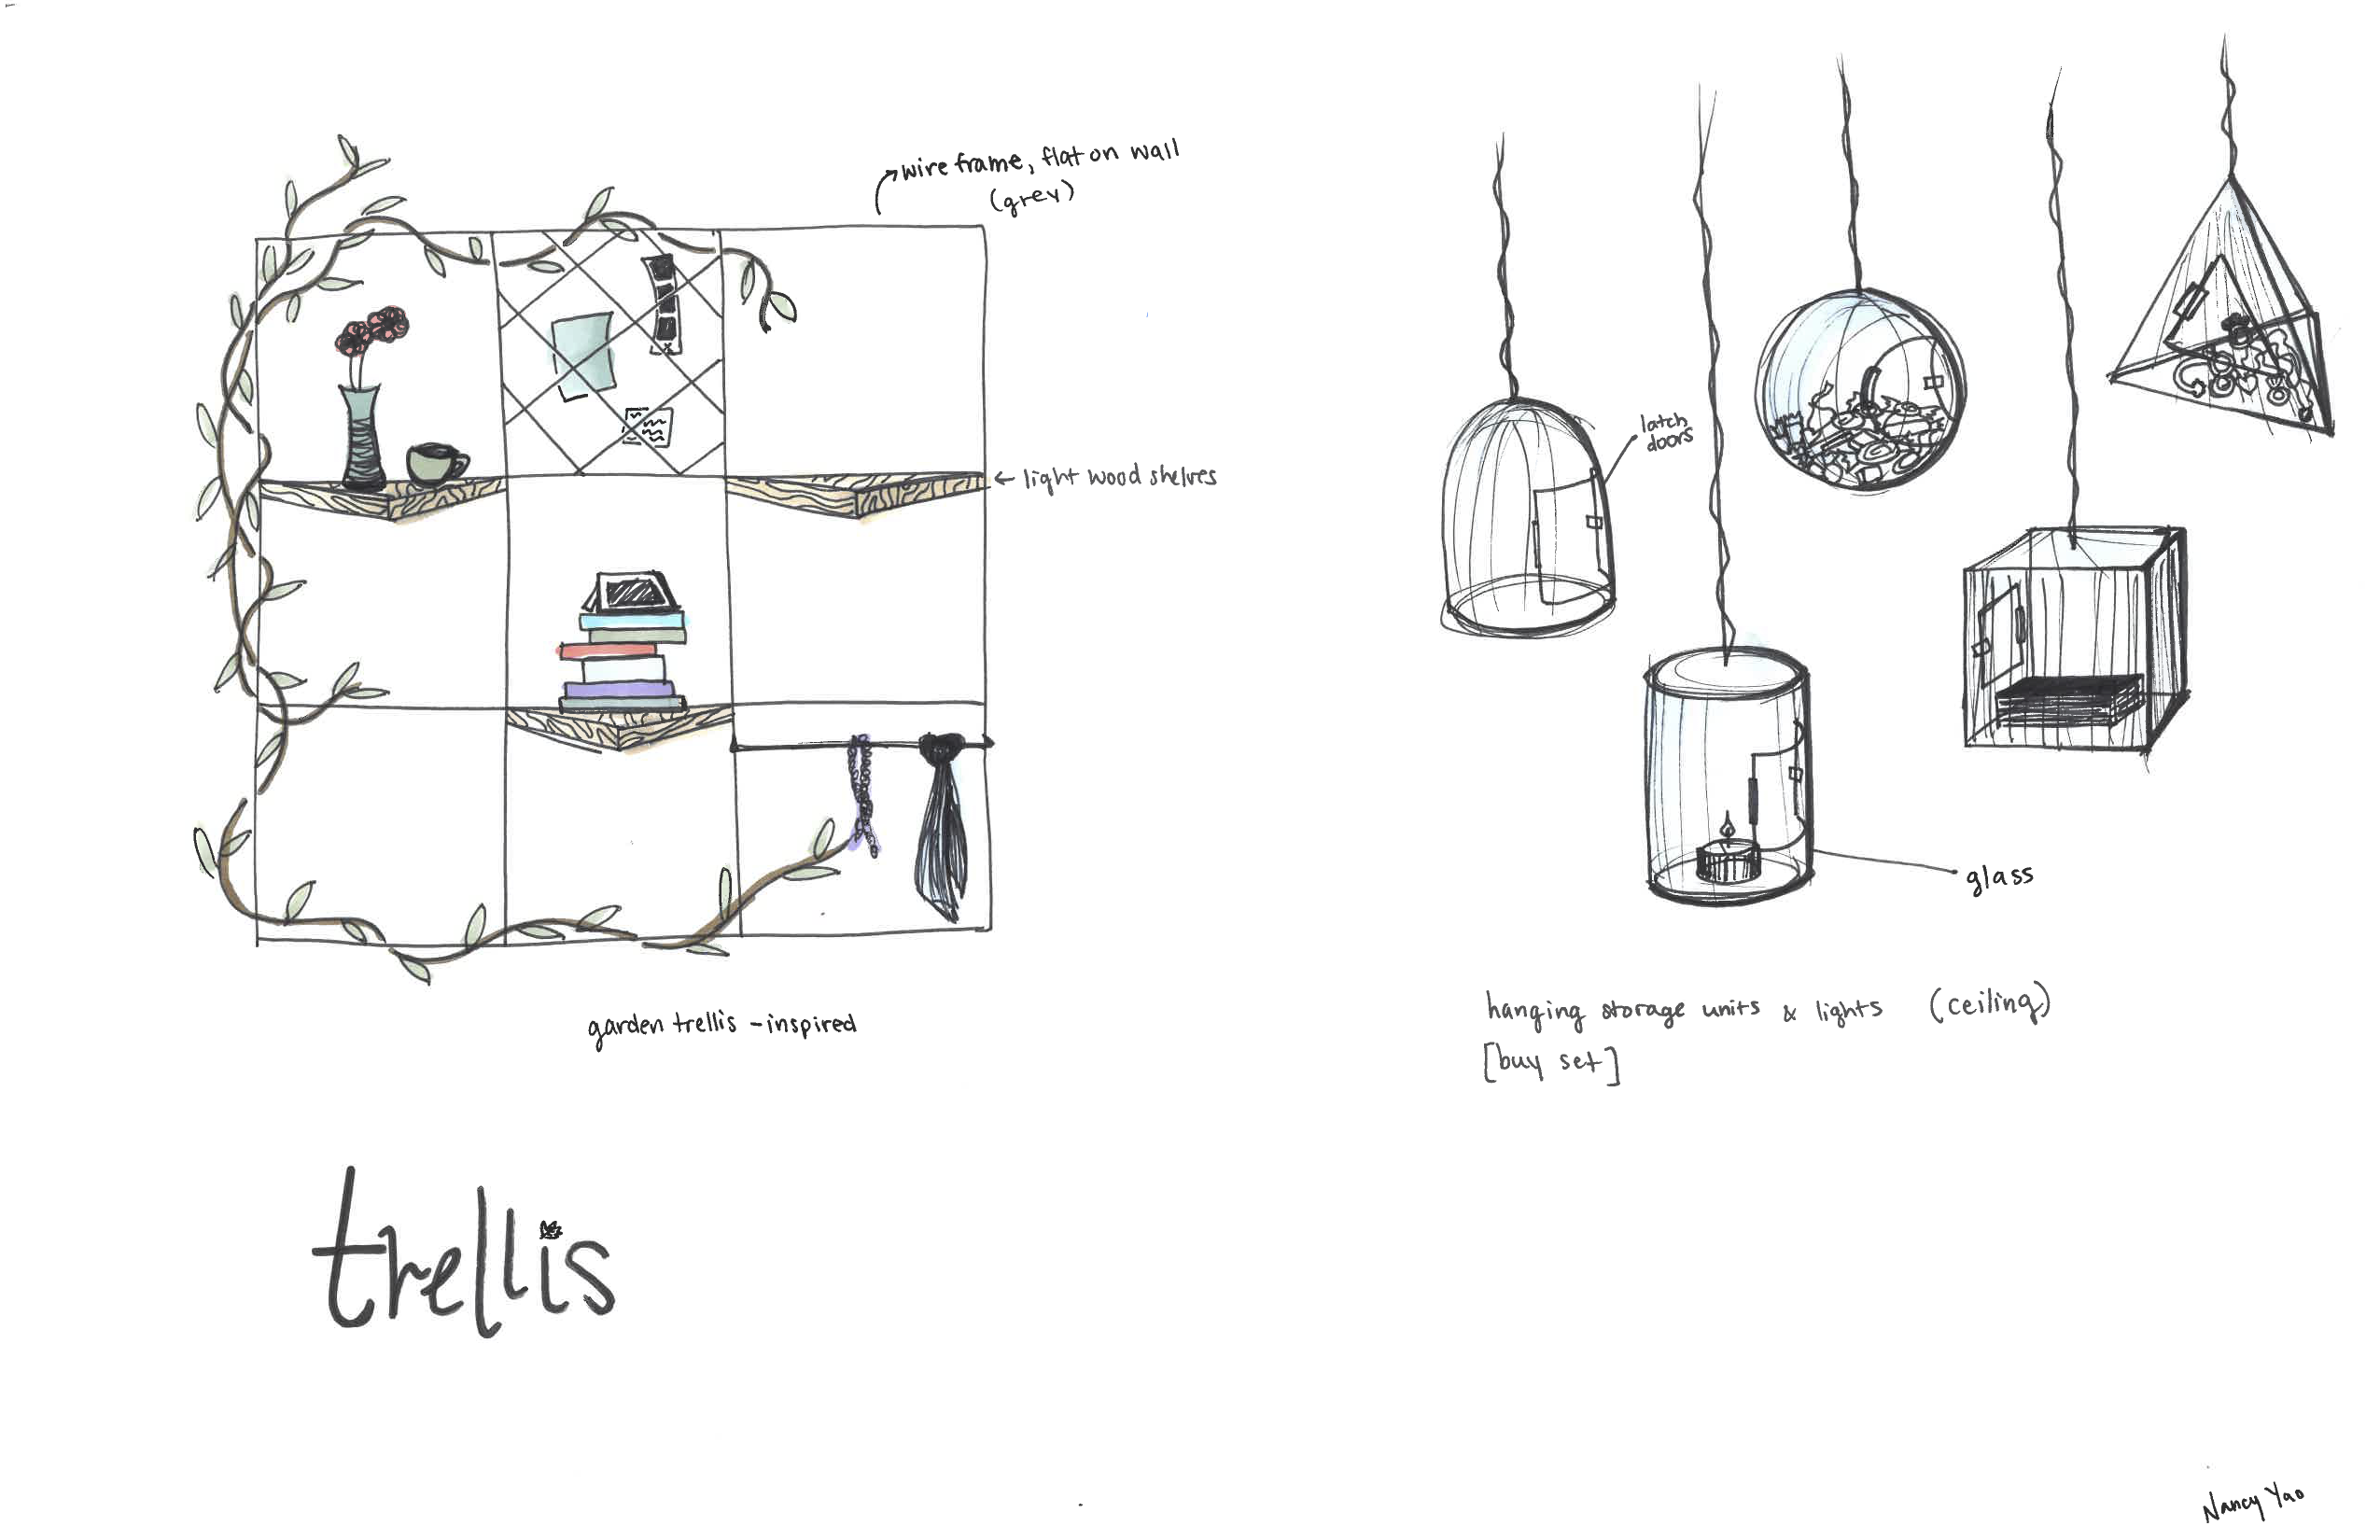 wire frame, flat on wall
(grey)
← light wood shelves
garden trellis - inspired
trellis
latch
doors
glass
hanging storage units & lights (ceiling)
[buy set]
Nancy Yao